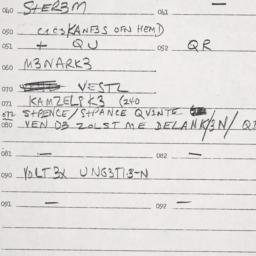 040 STER3M 041 —
050 C1C3(KANF3S OFN HEMD)
051 + QU 052 QR
060 M3NARK3
VESTZ
070
071 KAMZELIK3 (240
072 STPENCE/STPANCE QVINTE
080 VEN 03 ZOLST ME DELANK/3N/
081 — 082 —
090 VOLT 3X UNG3TI3-N
091 — 092 —